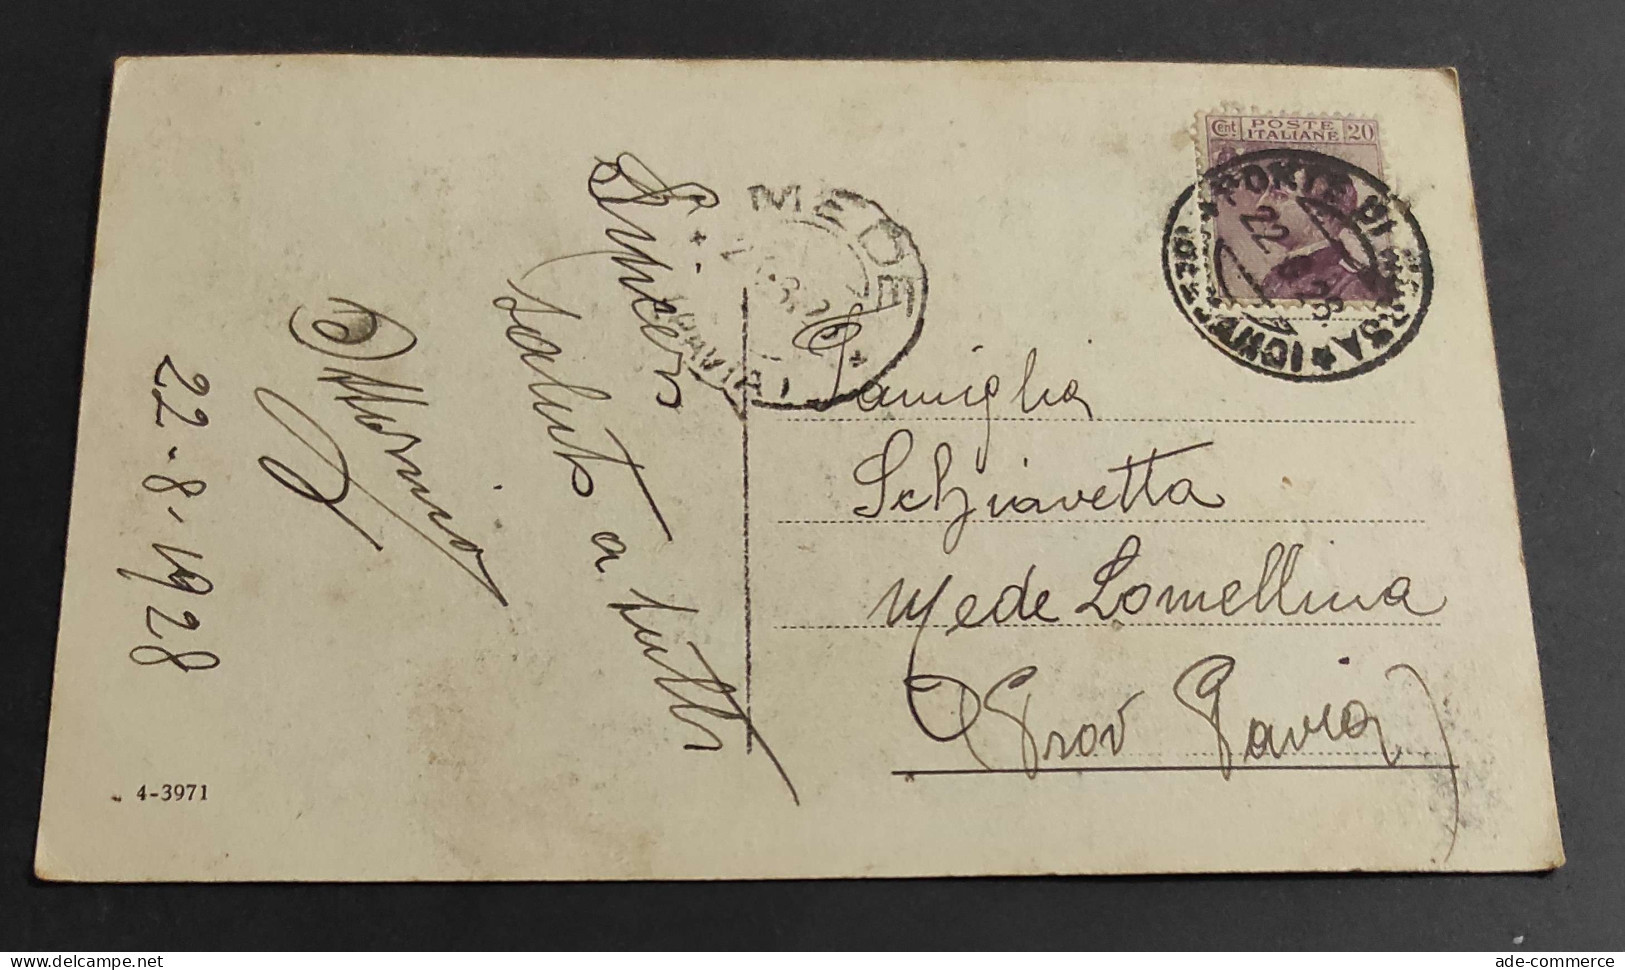 Sinceri
saluti a tutti
Ottorino
22-8-1928
4-3971
MEDE
(PAVIA)
Cent. POSTE ITALIANE 20
FORTE DI
22 8 28
Famiglia
Schiavetta
Mede Lomellina
(Prov Pavia)
delcampe.net
ade-commerce